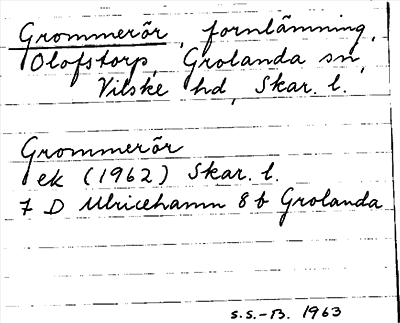 Grommerör, fornlämning,
Olofstorp, Grolanda sn,
Vilske hd, Skar. l.
Grommerör
ek (1962) Skar. l.
7 D Ulricehamn 8 b Grolanda
S.S.-B. 1963